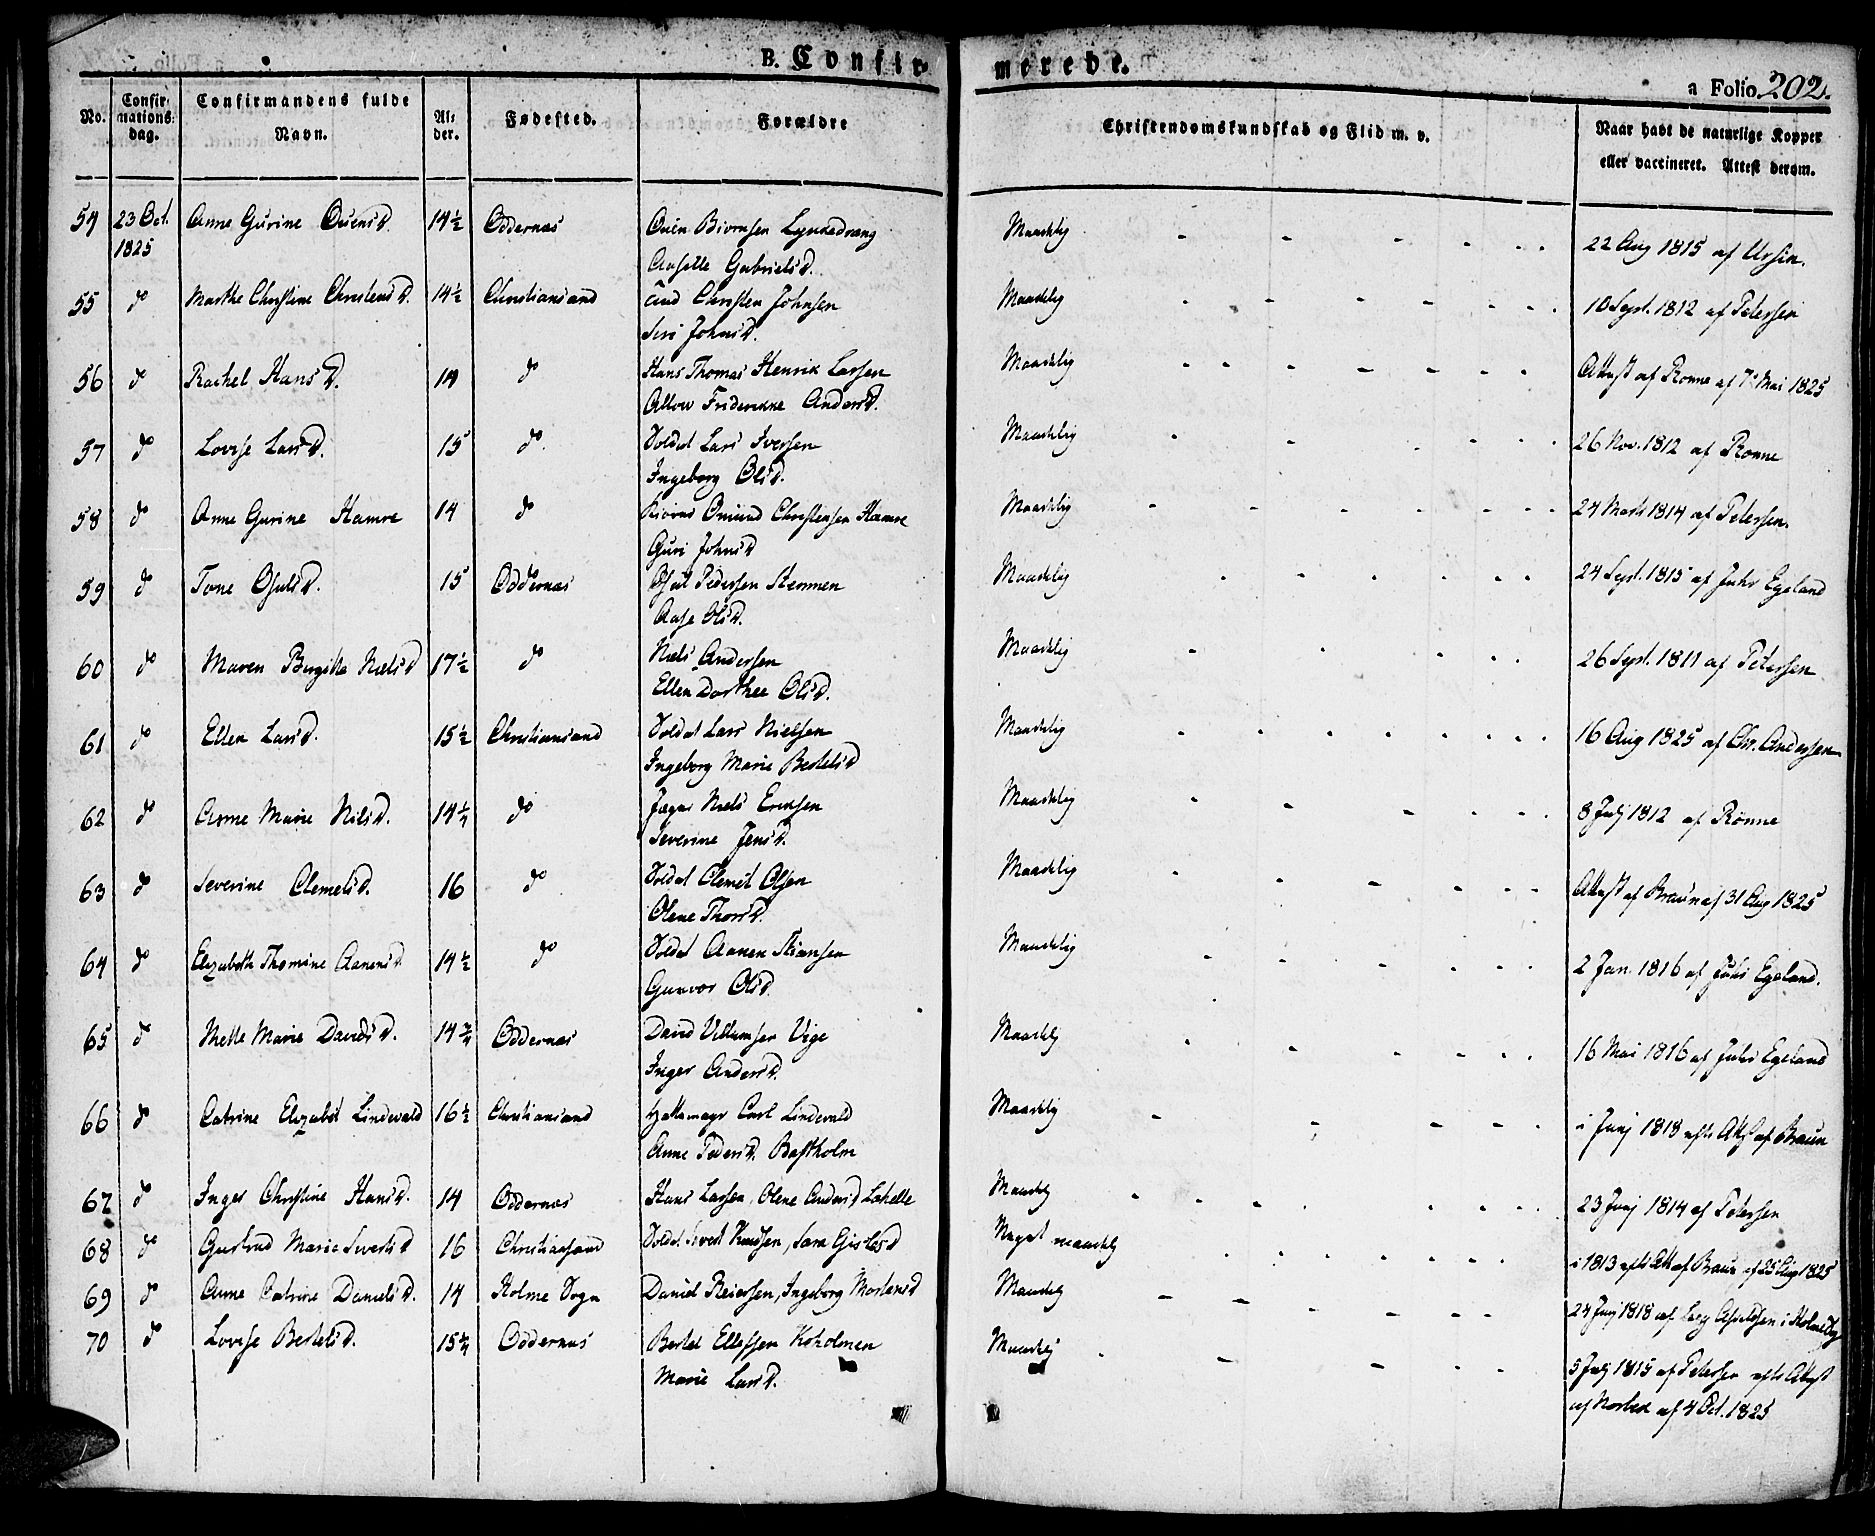 B. Confir-
merede.
a Folio. 202.
No.
Confir-
mations-
dag.
Confirmandens fulde
Navn.
Al-
der.
Fødested.
Forældre
Christendomskundskab og Flid m. v.
Naar havt de naturlige Kopper
eller vaccineret. Attest derom.
54 23 Oct. Anne Gurine Ouensd. 14½ Oddernæs Ouen Biornsen Maadelig 22 Aug 1815 af Ursin.
1825 Gabrielsd.
55 do Marthe Christine Christensd. 14½ Christiansand Christen Johnsen Maadelig 10 Sept. 1812 af Petersen
Siri Johnsd.
56 do Rachel Hansd. 14 do Hans Thomas Henrik Larsen Maadelig Attest af Rønne af 7 Mai 1825
Friderikke Andersd.
57 do Lovise Larsd. 15 do Soldat Lars Iversen Maadelig 26 Nov. 1812 af Rønne
Ingeborg Olsd.
58 do Anne Gurine Hamre 14 do Omund Christensen Hamre Maadelig 24 Marts 1814 af Petersen.
Guri Johnsd
59 do Tone Osulsd. 15 Oddernæs Osul Pedersen Maadelig 24 Sept. 1815 af Egeland
Aase Olsd.
60 do Maren Birgitte Nielsd 17½ do Niels Andersen Maadelig 26 Sept. 1811 af Petersen
Ellen Dorthee Olsd.
61 do Ellen Larsd. 15½ Christiansand Soldat Lars Nielsen Maadelig 16 Aug 1825 af Chr. Andersen
Ingeborg Marie Bertelsd
62 do Anne Marie Nilsd. 14¼ do Jæger Niels Ericsen Maadelig 8 Julj 1812 af Rønne
Severine Jensd.
63 do Severine Clemetsd. 16 do Soldat Clemet Olsen Maadelig Attest af Braun af 31 Aug 1825
Olene Thorsd.
64 do Elizabeth Thomine Aanensd. 14½ do Soldat Aanen Maadelig 2 Jan. 1816 af Egeland.
Gunvor Olsd.
65 do Mette Marie Davidsd. 14¾ Oddernæs David Villumsen Vige Maadelig 16 Mai 1816 af Egeland
Inger Andersd.
66 do Catrine Elizabet Lindevald 16½ Christiansand Hattemager Carl Lindevald Maadelig i Junj 1818 efter Att. af Braun
Anne Pedersd. Bastholm
67 do Inger Christine Hansd. 14 Oddernæs Hans Larsen, Olene Andersd Maadelig 23 Junj 1814 af Petersen
68 do Gurtrud Marie Sivertsd 16 Christiansand Soldat Sivert Knudsen, Sara Maadelig i 1813 efter Att. af Braun af 25 Aug 1825
69 do Anne Catrine Danielsd. 14 Holme Sogn Daniel Reiersen, Ingeborg Mortensd Maadelig 24 Junj 1818 af i Holme
70 do Lovise Bertelsd. 15¾ Oddernæs Bertel Ellefsen Koholmen Maadelig 5 Julj 1815 af Petersen efter Attest
Marie Larsd. af af 4 Oct. 1825